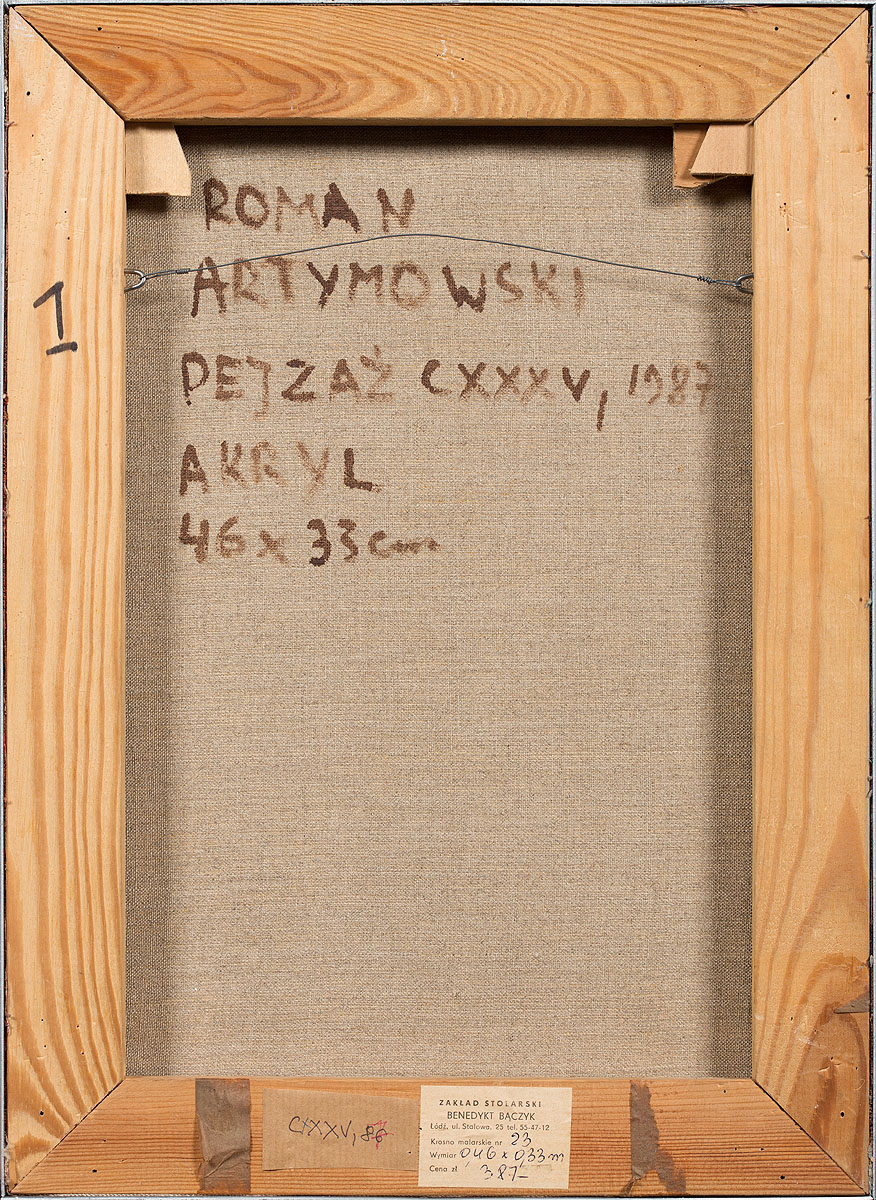 ROMAN
ARTYMOWSKI
1
PEJZAŻ CXXXV, 1987
AKRYL
46 x 33 cm
CXXXV, 87
ZAKŁAD STOLARSKI
BENEDYKT BĄCZYK
Łódź, ul. Stalowa. 25 tel. 55-47-12
Krosno malarskie nr 23
Wymiar 0,46 x 0,33 m
Cena zł 387-